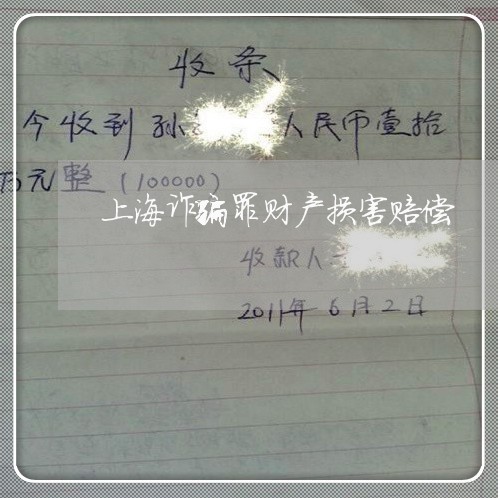 收条
今收到孙人民币壹拾
万元整（100000）
上海诈骗罪财产损害赔偿
收款人
2011年6月2日